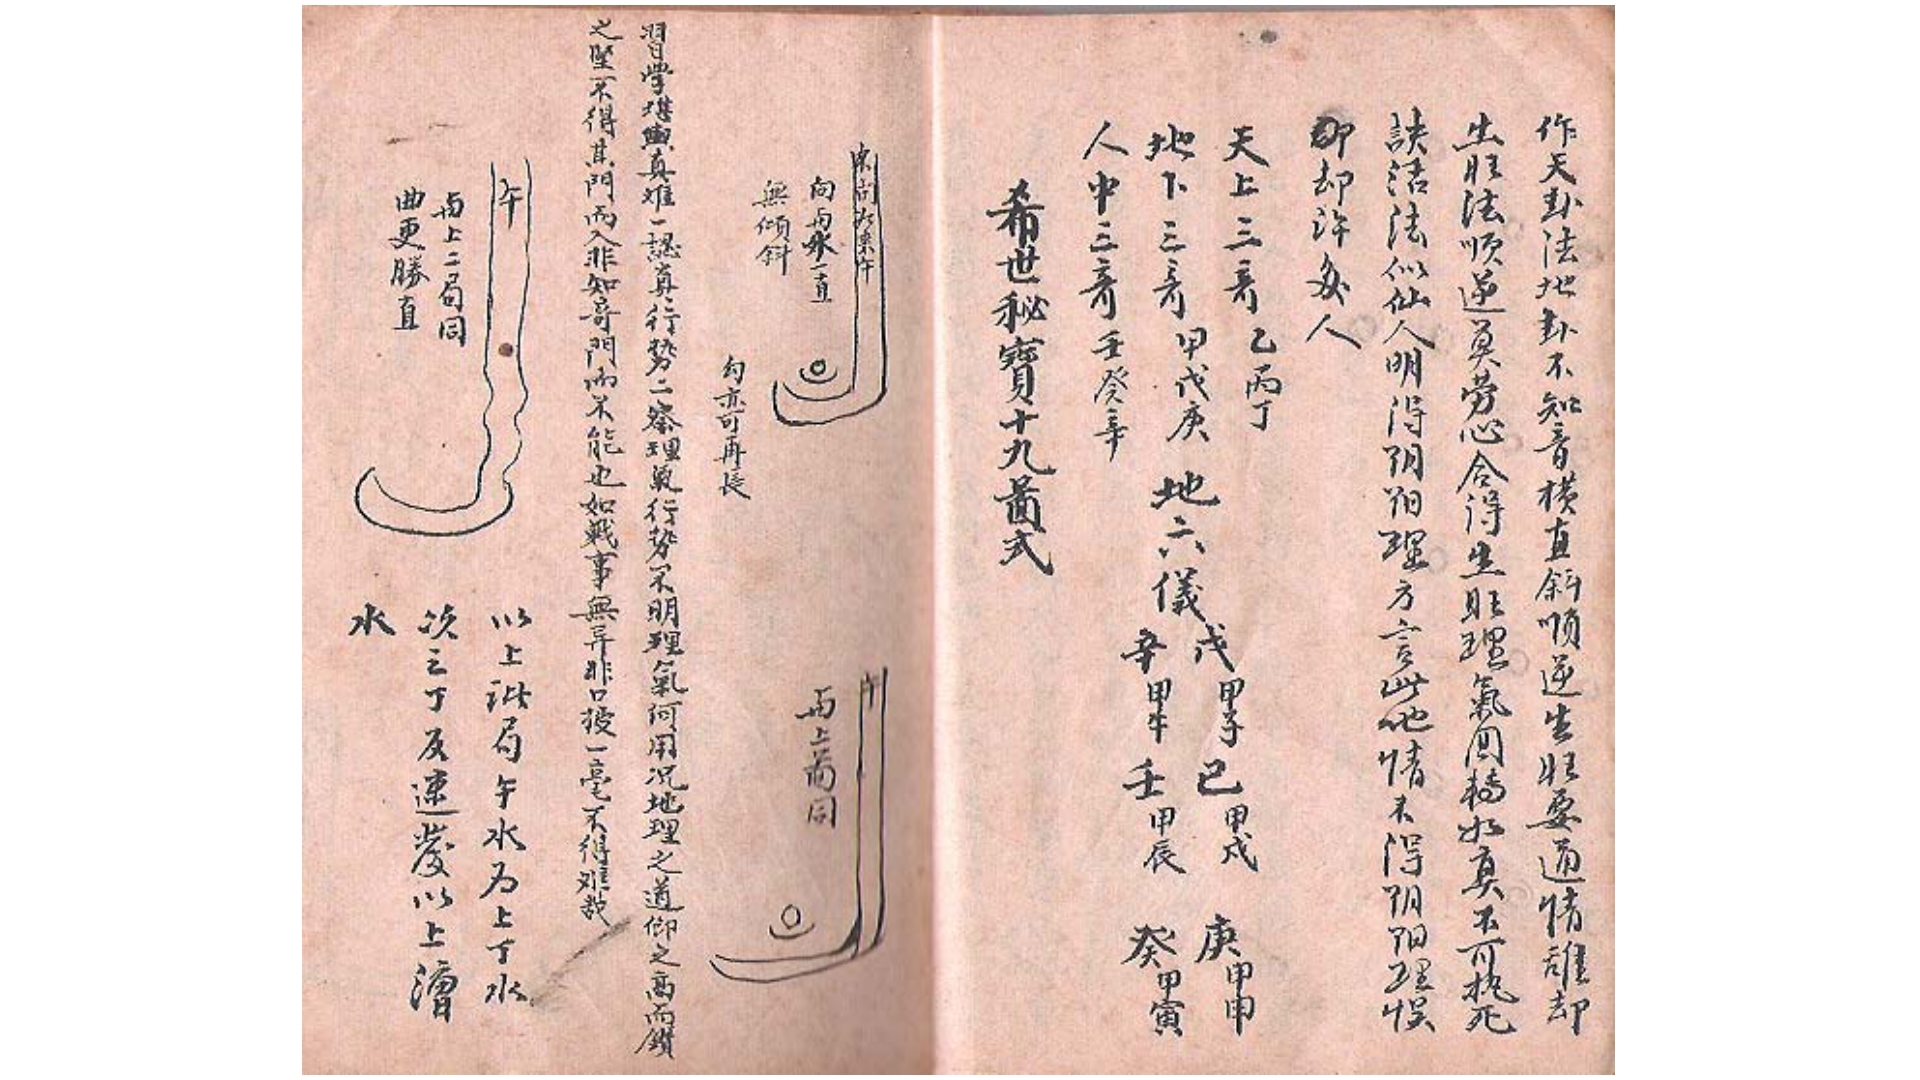 作天卦法地卦不知音横直斜順逆生旺要通情難却
生旺法順逆莫劳心合得生旺理氣囬轉如真不可执死
訣活法似仙人明得阴阳理方言此地情不得阴阳理悮
却許多人
天上三奇乙丙丁
地下三奇甲戊庚
人中三奇壬癸辛
地六儀
戊甲子己甲戌庚甲申
辛甲午壬甲辰癸甲寅
希世秘寶十九啚式
向
一直
無傾斜
勾亦可再長
午
上啚同
習學堪輿真难一認真行势二察理氣行势不明理氣何用况地理之道仰之高而鑽
之堅不得其門而入非知奇門而不能也如戰事無异非口授一毫不得难哉
午
上二局同
曲更勝直
以上局午水为上丁水
次之丁反速發以上
水